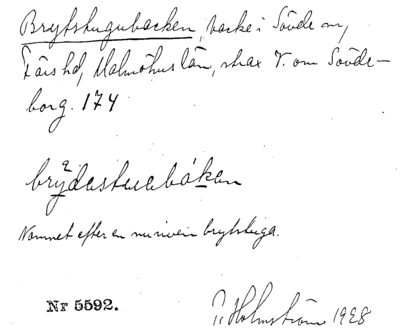 Brytstugubacken, backe i Sövde sn,
Färs hd, Malmöhus län, strax V. om Sövde-
borg. 174
brydastuabåkan
Namnet efter en nu riven brytstuga.
Nr 5592.
Holmström 1928